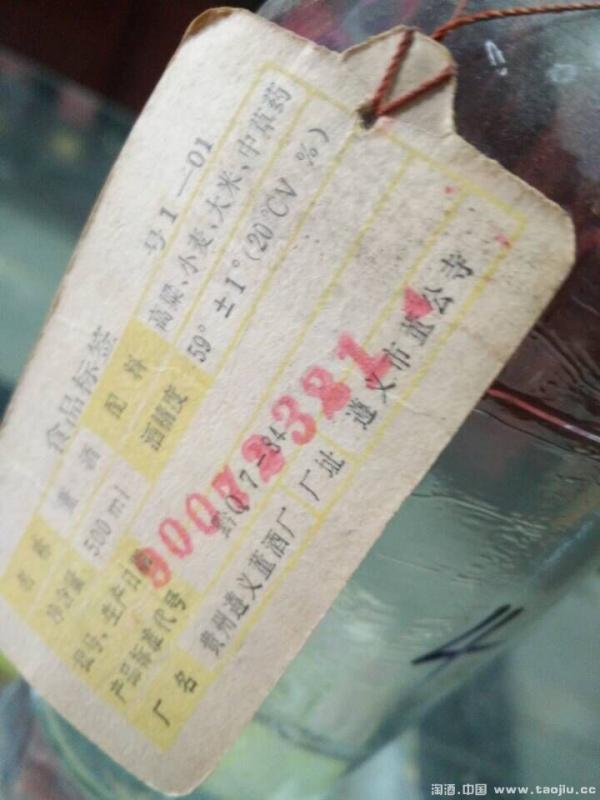 号1—01
食品标签
名称 董酒 配料 高粱、小麦、大米、中草药
净含量 500ml 酒精度 59°±1°(20℃V%)
批号、生产日期 90072321
产品标准代号 黔Q7—84
厂名 贵州遵义董酒厂 厂址 遵义市董公寺
淘酒.中国 www.taojiu.cc